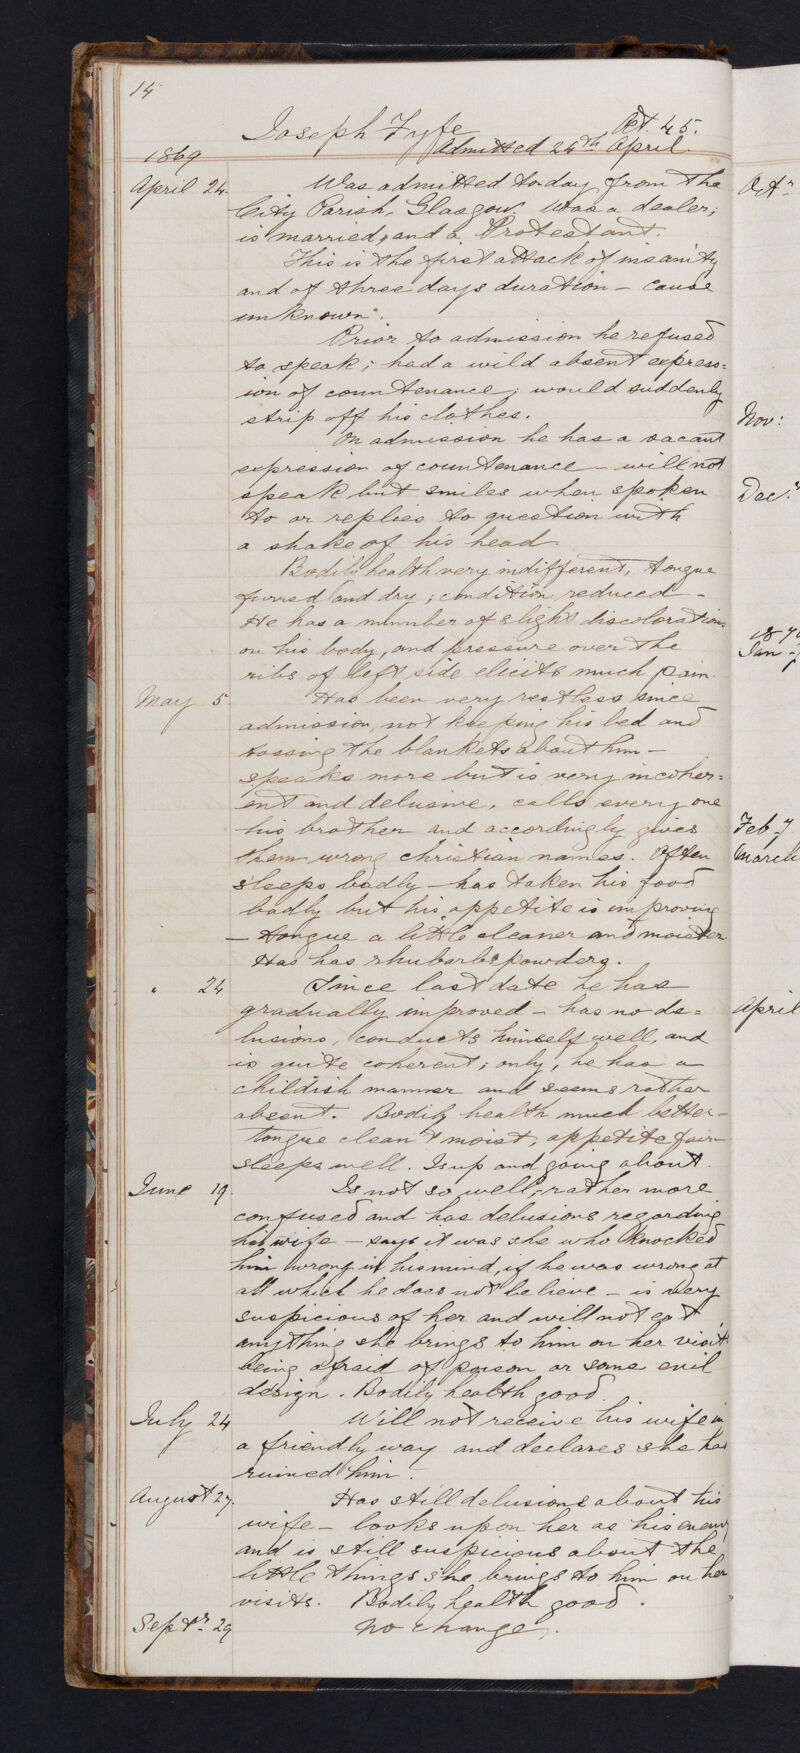 14
Joseph Fyfe Æt. 45.
1869 Admitted 24th April.
April 24. Was admitted to-day from the
City Parish, Glasgow. Was a dealer;
is married, and a Protestant.
This is the first attack of insanity
and of three days duration — cause
unknown.
Prior to admission he refused
to speak; had a wild absent express=
ion of countenance; would suddenly
strip off his clothes.
On admission he has a vacant
expression of countenance — will not
speak but smiles when spoken
to or replies to question with
a shake of his head.
Bodily health very indifferent, tongue
furred and dry; condition reduced —
He has a number of slight discolorations
on his body, and pressure over the
ribs of left side elicits much pain.
May 5. Has been very restless since
admission, not keeping his bed and
tossing the blankets about him —
speaks more but is very incoher=
ent and delusive, calls every one
his brother and accordingly gives
them wrong christian names. Often
sleeps badly — has taken his food
badly but his appetite is improving
— tongue a little cleaner and moister
Has has rhubarb powders.
" 24 Since last date he has
gradually improved — has no de=
lusions, conducts himself well, and
is quite coherent; only, he has a
childish manner and seems rather
absent. Bodily health much better —
tongue clean & moist, appetite fair —
sleeps well. Is up and going about.
June 19. Is not so well, rather more
confused and has delusions regarding
his wife — says it was she who knocked
him wrong in his mind, if he was wrong at
all which he does not believe — is very
suspicious of her and will not eat
anything she brings to him on her visit
being afraid of poison or some evil
design. Bodily health good.
July 24 Will not receive his wife in
a friendly way and declares she has
ruined him.
August 27. Has still delusions about his
wife — looks upon her as his enemy
and is still suspicious about the
little things she brings to him on her
visits. Bodily health good.
Septr. 29 No change.
Octr
Nov:
Decr
1870
Jany
Feby
March
April